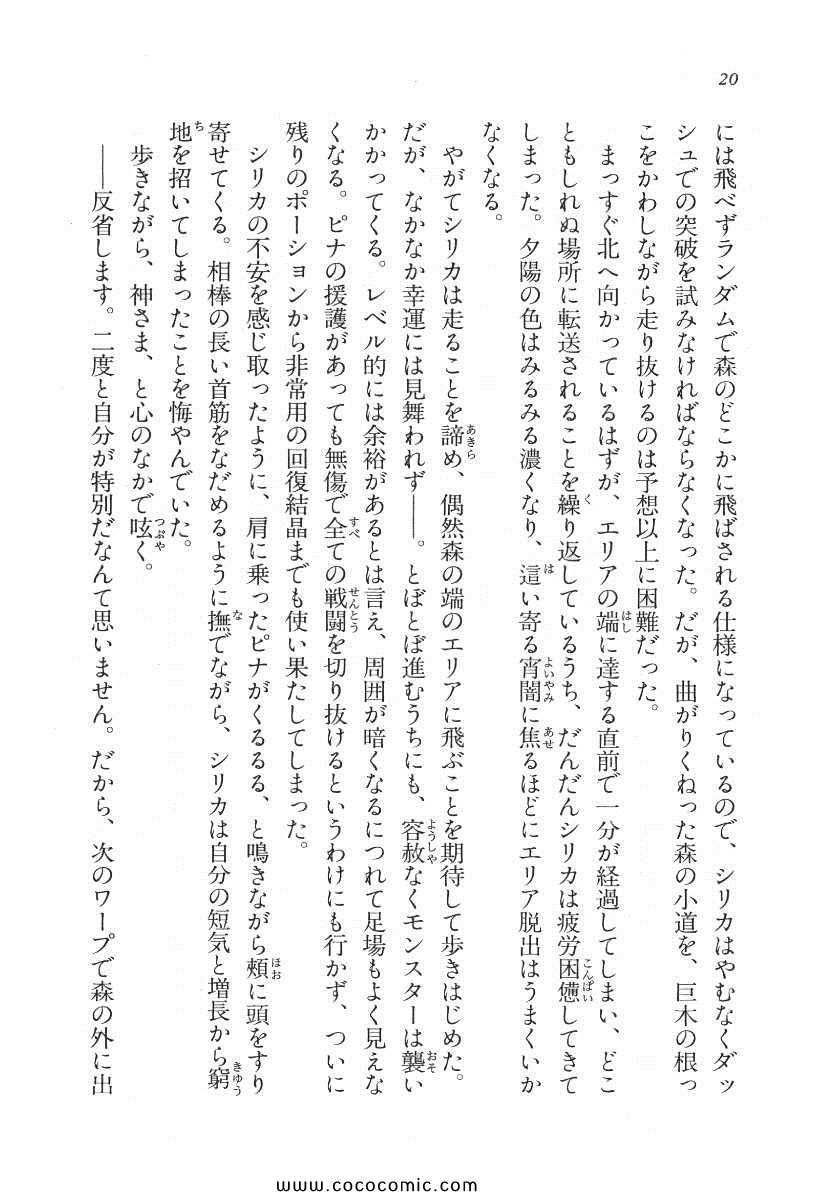 20
には飛べずランダムで森のどこかに飛ばされる仕様になっているので、シリカはやむなくダッ
シュでの突破を試みなければならなくなった。だが、曲がりくねった森の小道を、巨木の根っ
こをかわしながら走り抜けるのは予想以上に困難だった。
まっすぐ北へ向かっているはずが、エリアの端に達する直前で一分が経過してしまい、どこ
ともしれぬ場所に転送されることを繰り返しているうち、だんだんシリカは疲労困憊してきて
しまった。夕陽の色はみるみる濃くなり、這い寄る宵闇に焦るほどにエリア脱出はうまくいか
なくなる。
やがてシリカは走ることを諦め、偶然森の端のエリアに飛ぶことを期待して歩きはじめた。
だが、なかなか幸運には見舞われず――。とぼとぼ進むうちにも、容赦なくモンスターは襲い
かかってくる。レベル的には余裕があるとは言え、周囲が暗くなるにつれて足場もよく見えな
くなる。ピナの援護があっても無傷で全ての戦闘を切り抜けるというわけにも行かず、ついに
残りのポーションから非常用の回復結晶までも使い果たしてしまった。
シリカの不安を感じ取ったように、肩に乗ったピナがくるるる、と鳴きながら頬に頭をすり
寄せてくる。相棒の長い首筋をなだめるように撫でながら、シリカは自分の短気と増長から窮
地を招いてしまったことを悔やんでいた。
歩きながら、神さま、と心のなかで呟く。
――反省します。二度と自分が特別だなんて思いません。だから、次のワープで森の外に出
www.cococomic.com